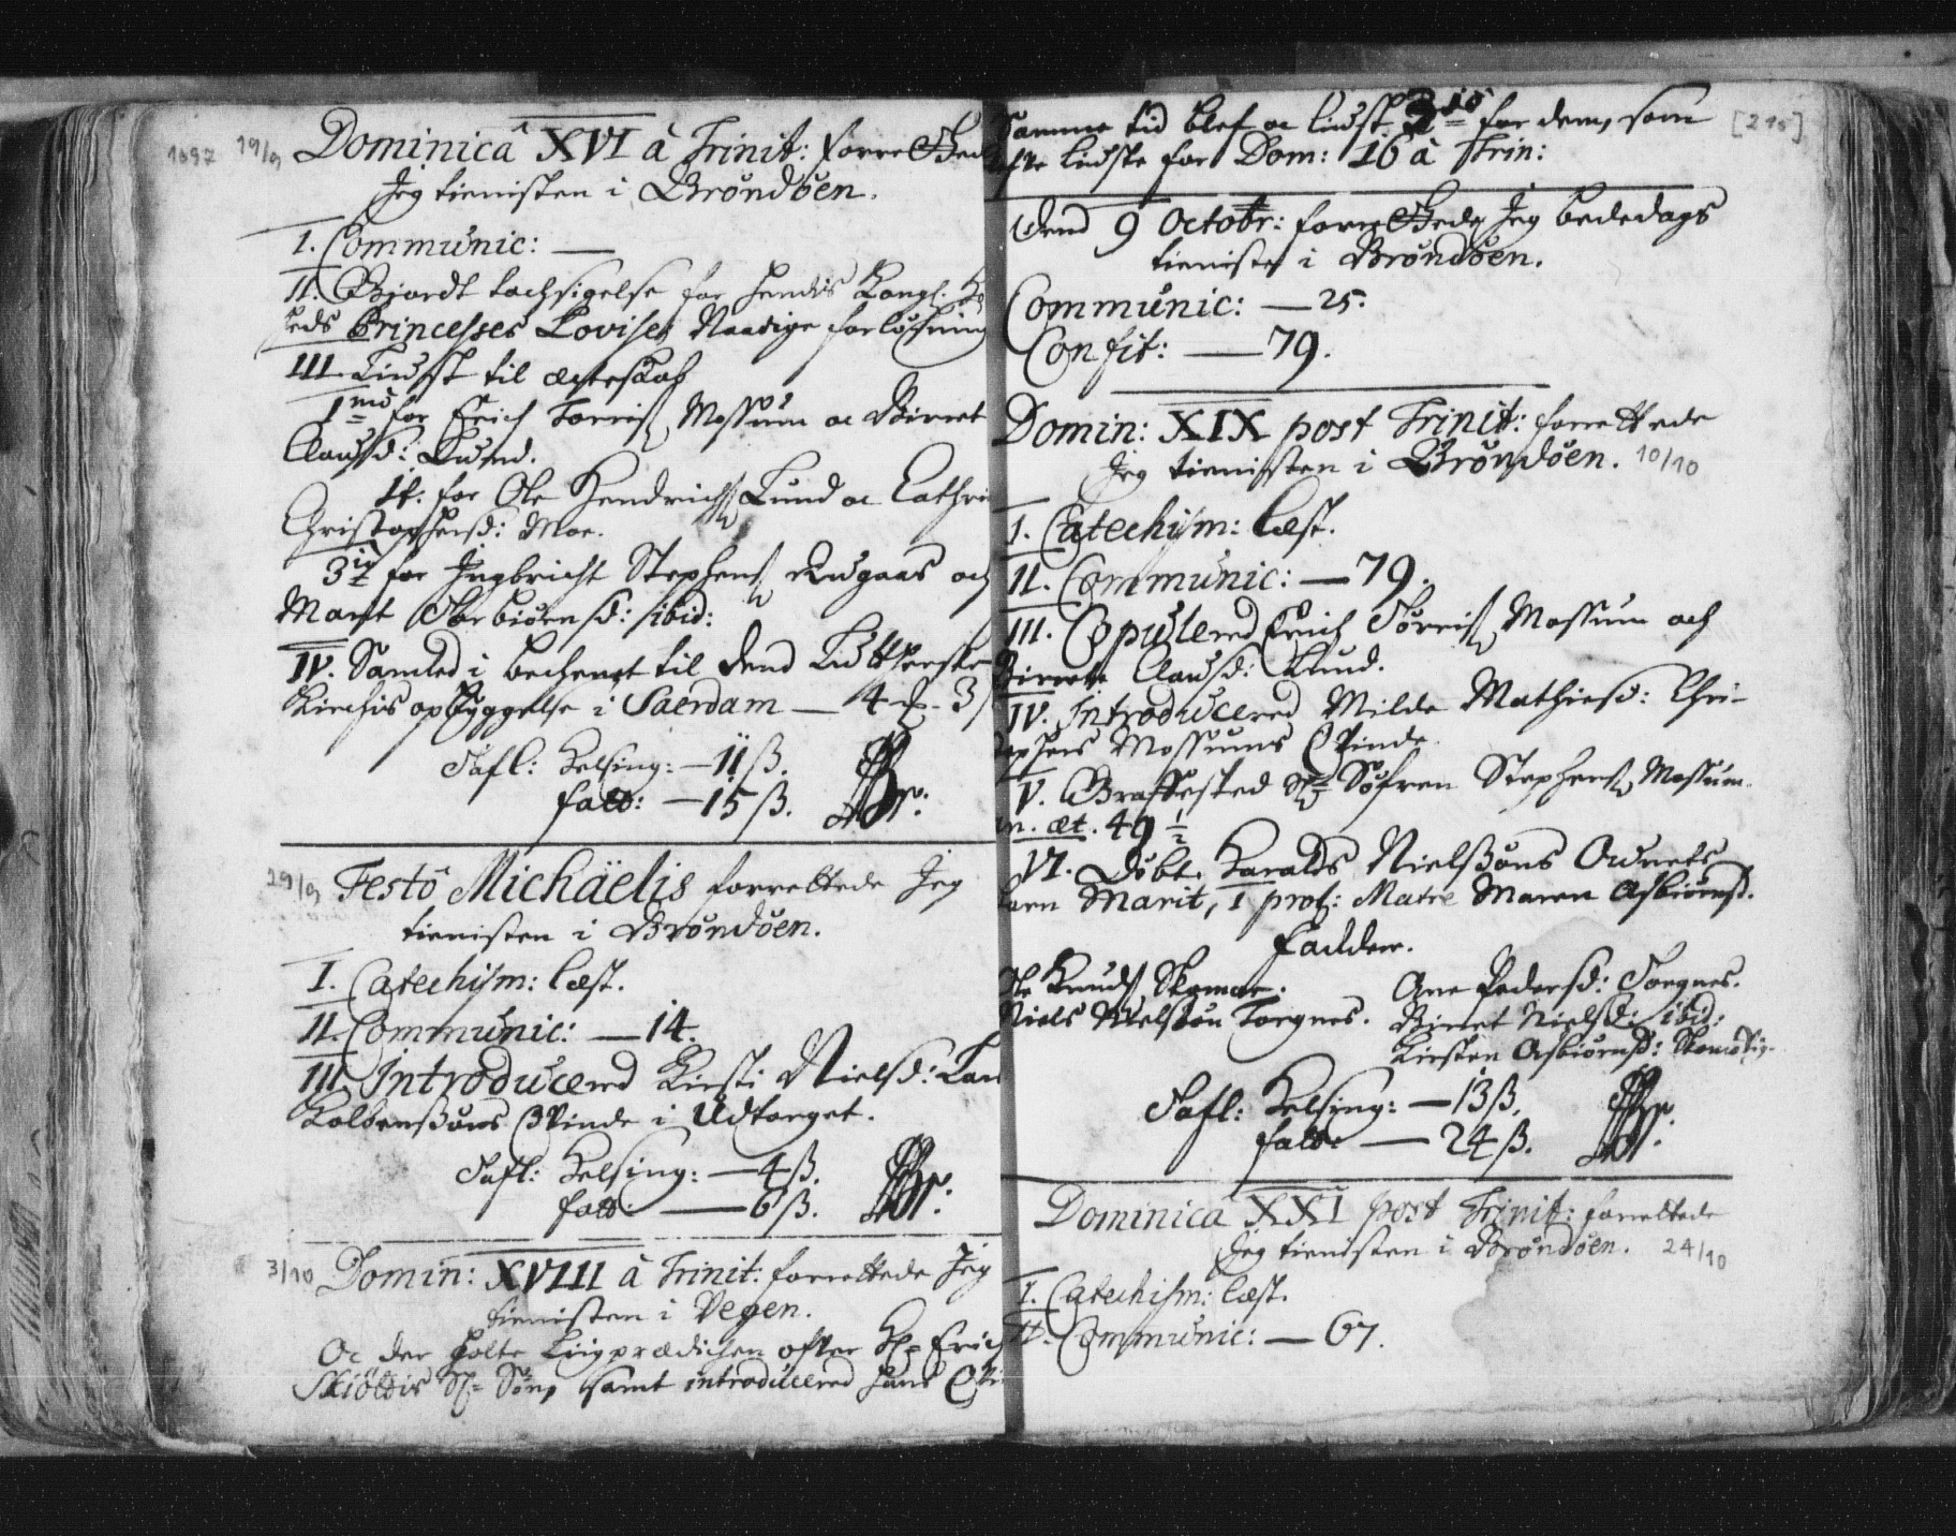 1697 19/9 Dominicâ XVI â Trinit: forrettede
Jeg tienisten i Brøndöen.
I. Communic: —
II. Gjordt tachsigelse for hendis Kongl. 
heds Princesses Lovises Naadige forløsning
III. Liust til ægteskab
1mo for Erich Torris. Mossum oc Birret
Clausd: Lund.
II. for Ole Hendrichs. Lund oc Cathri
Christophersd: Moe.
3io for Ingbricht Stephens. Rugaas och
Marit Torbiørnsd: ibid:
IV. Samled i bechenet til dend Lutherske
Kirchis opbyggelse i Saerdam — 4 3
Tafl: Helsing: — 11 ß.
fatt: — 15 ß.
29/9 Festô Michäelis forrettede Jeg
tienisten i Brøndöen.
I. Catechism: læst.
II. Communic: — 14.
III. Introducered Kirsti Nielsd:
Kolbensøns Qvinde i Udtorget.
Tafl: Helsing: — 4 ß.
fatt: — 6 ß.
3/10 Domin: XVIII â Trinit: forrettede Jeg
tienisten i Vegen.
Oc der holte Liigprædichen ofver Erich
Skiöldis Søn, samt introducered hans
Samme tid blef oc liust 3io for dem, som [215]
liuste for Dom: 16 â Trin:
Dend 9 Octobr: forrettede Jeg bededags
tieniste i Brøndöen.
Communic: — 25.
Confit: — 79.
Domin: XIX post Trinit: forrettede
Jeg tienisten i Brøndöen. 10/10
I. Catechism: læst.
II. Communic: — 79.
III. Copulered Erich Torris. Mossum och
Birrete Clausd: Lund.
IV. Introducered Milde Mathiesd: Chri-
stophers Mossums Qvinde.
V. Graffested Søfren Stephens. Mossum.
an. æt. 49 1/2
VI. Døbt Haralds Nielsøns
barn Marit, 1 prof: Matre Maren Asbiørnsd.
Fadder.
Ole Knuds. Skomoe. Ane Pedersd: Torgnes.
Niels Nielsøn Torgnes. Birret Nielsd: ibid:
Kirsten Asbiørnsd:
Tafl: Helsing: — 13 ß.
fatt: — 24 ß.
Dominica XXI post Trinit: forrettede
Jeg tienisten i Brøndöen. 24/10
I. Catechism: læst.
II. Communic: — 67.